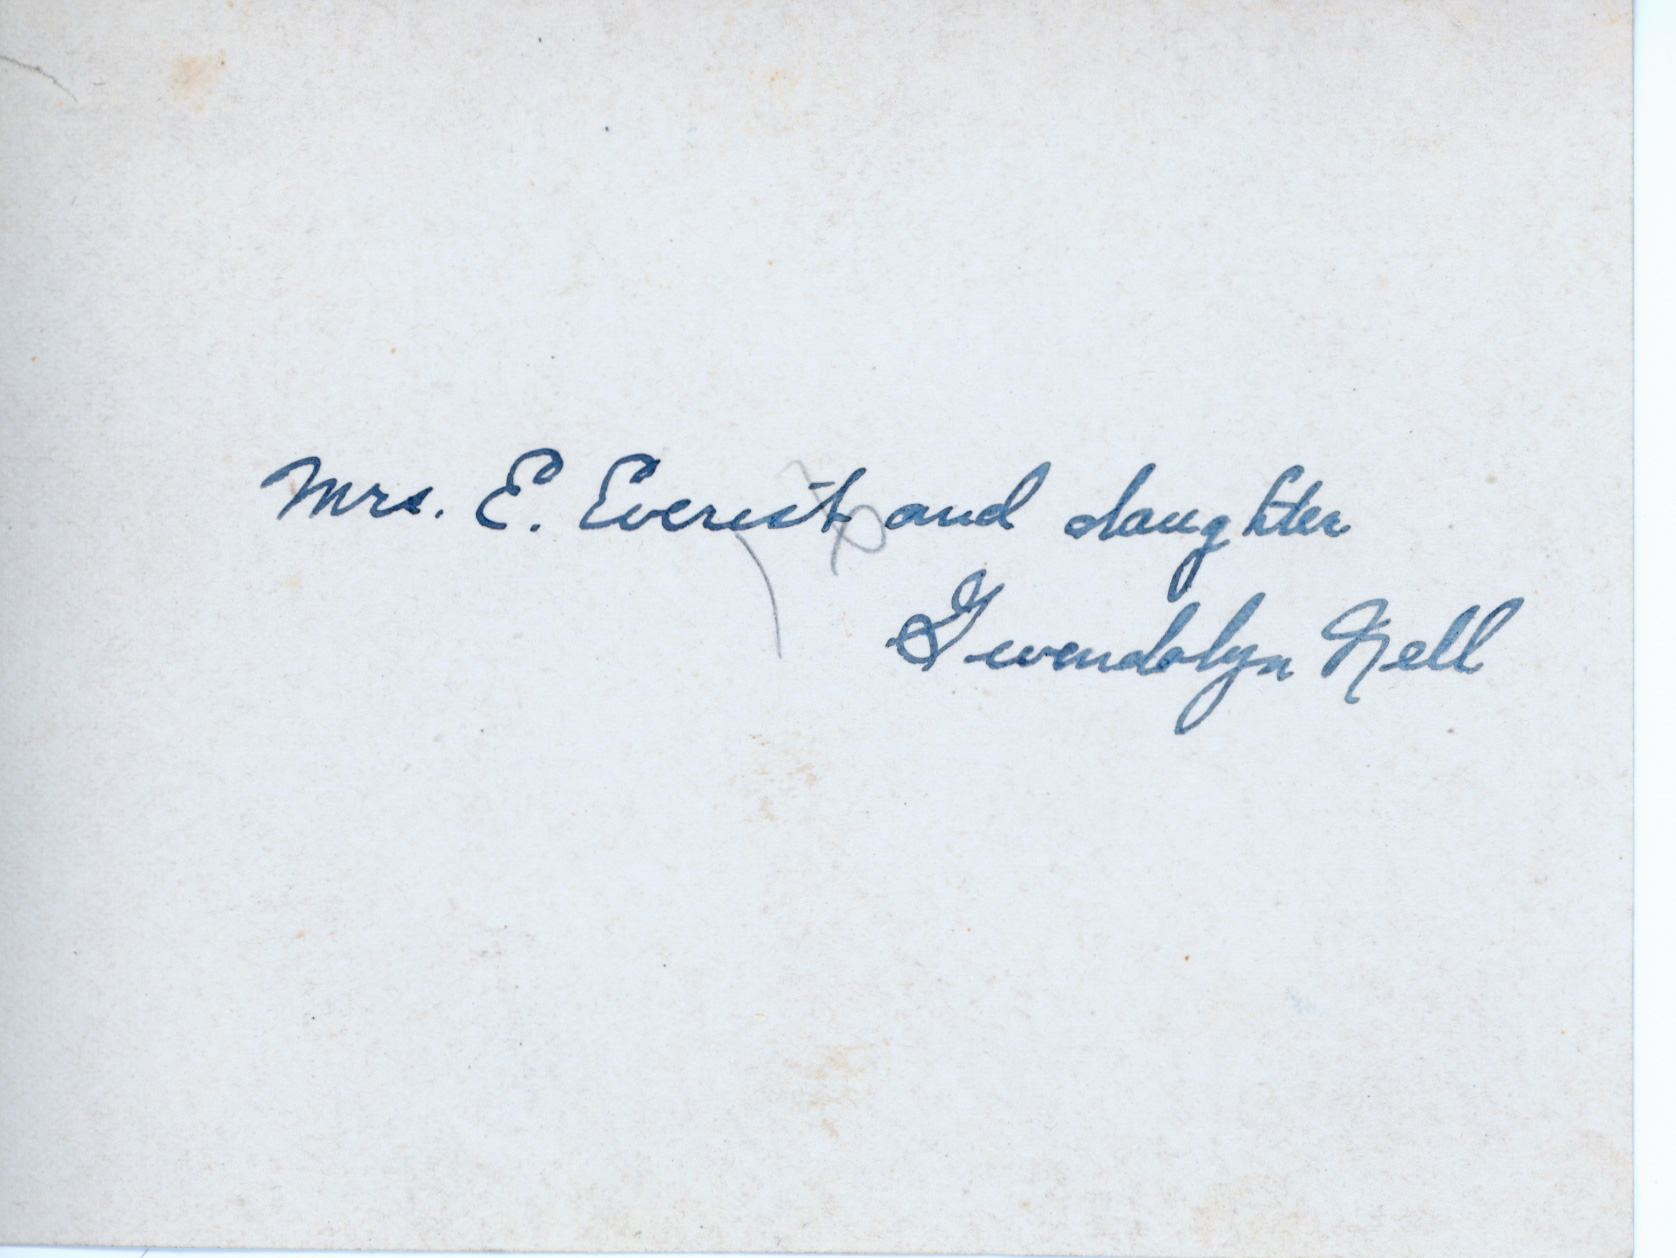 Mrs. E. Everist and daughter
Gwendolyn Nell